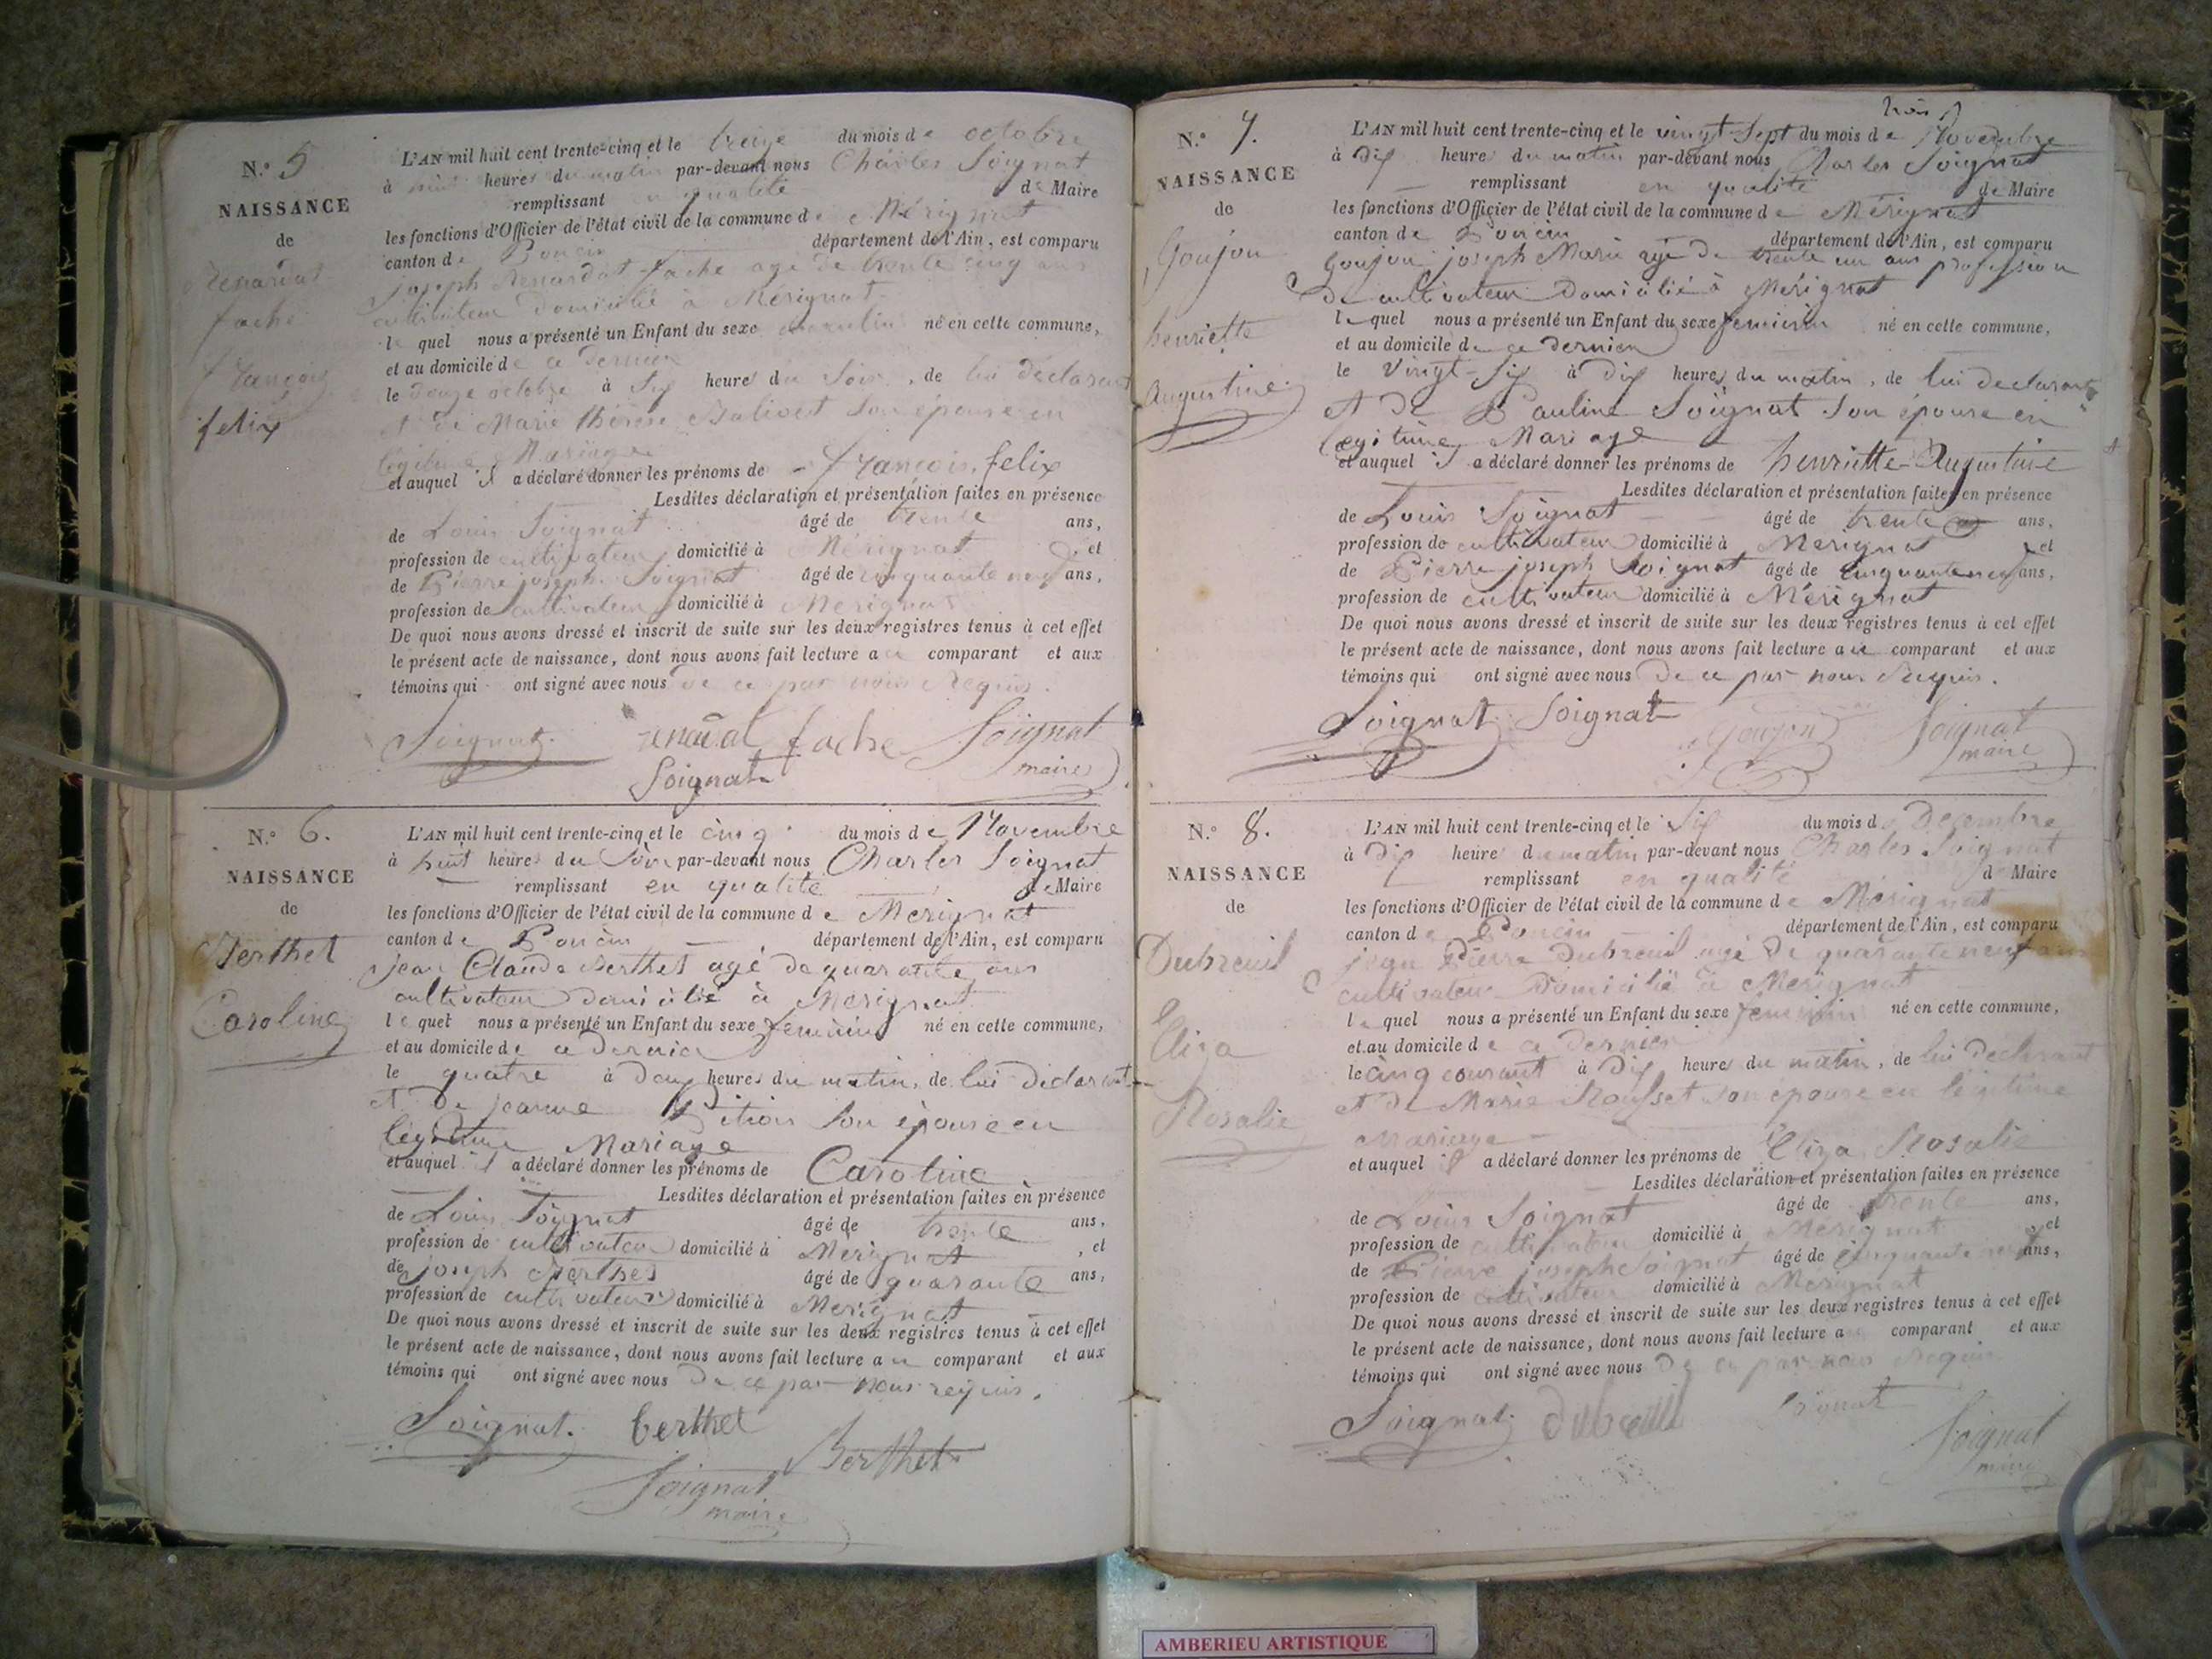 N.° 5
NAISSANCE
de
Renardat
fache
françois
felix
L'AN mil huit cent trente-cinq et le treize du mois de octobre
à huit heures du matin par-devant nous Charles Soignat
remplissant en qualité de Maire
les fonctions d'Officier de l'état civil de la commune de Mérignat
canton de Poncin département de l'Ain, est comparu
joseph Renardat-fache agé de trente cinq ans
cultivateur domicilié à Mérignat
le quel nous a présenté un Enfant du sexe masculin né en cette commune,
et au domicile de ce dernier
le douze octobre à Six heures du Soir, de lui déclarant
et de Marie thérèse Balivet Son épouse en
légitime Mariage
et auquel il a déclaré donner les prénoms de françois, felix
Lesdites déclaration et présentation faites en présence
de Louis Soignat âgé de trente ans,
profession de cultivateur domicilié à Mérignat, et
de Pierre joseph Soignat âgé de cinquante neuf ans,
profession de cultivateur domicilié à Merignat
De quoi nous avons dressé et inscrit de suite sur les deux registres tenus à cet effet
le présent acte de naissance, dont nous avons fait lecture au comparant et aux
témoins qui ont signé avec nous de ce par nous Requis.
Soignat fache Soignat
Soignat maire
N.° 6.
NAISSANCE
de
Berthet
Caroline
L'AN mil huit cent trente-cinq et le cinq du mois de Novembre
à huit heures du Soir par-devant nous Charles Soignat
remplissant en qualité de Maire
les fonctions d'Officier de l'état civil de la commune de Merignat
canton de Poncin département de l'Ain, est comparu
jean Claude Berthet agé de quarante ans
cultivateur domicilié à Merignat
le quel nous a présenté un Enfant du sexe feminin né en cette commune,
et au domicile de ce dernier
le quatre à deux heures du matin, de lui déclarant
et de jeanne Son épouse en
légitime Mariage
et auquel il a déclaré donner les prénoms de Caroline
Lesdites déclaration et présentation faites en présence
de Louis Soignat âgé de trente ans,
profession de cultivateur domicilié à Merignat, et
de joseph Berthet âgé de quarante ans,
profession de cultivateur domicilié à Merignat
De quoi nous avons dressé et inscrit de suite sur les deux registres tenus à cet effet
le présent acte de naissance, dont nous avons fait lecture au comparant et aux
témoins qui ont signé avec nous de ce par nous requis.
Soignat. berthet
Berthet
Soignat
maire
N.° 7.
NAISSANCE
de
Goujon
henriette
Augustine
L'AN mil huit cent trente-cinq et le vingt-Sept du mois de Novembre
à dix heures du matin par-devant nous Charles Soignat
remplissant en qualité de Maire
les fonctions d'Officier de l'état civil de la commune de Mérignat
canton de Poncin département de l'Ain, est comparu
Goujon joseph Marie agé de trente un ans profession
de cultivateur domicilié à Mérignat
le quel nous a présenté un Enfant du sexe feminin né en cette commune,
et au domicile de ce dernier
le Vingt-Six à dix heures du matin, de lui declarant
et de Pauline Soignat Son épouse en
légitime Mariage
et auquel il a déclaré donner les prénoms de henriette-Augustine
Lesdites déclaration et présentation faites en présence
de Louis Soignat âgé de trente ans,
profession de cultivateur domicilié à Merignat, et
de Pierre joseph Soignat âgé de cinquante neuf ans,
profession de cultivateur domicilié à Mérignat
De quoi nous avons dressé et inscrit de suite sur les deux registres tenus à cet effet
le présent acte de naissance, dont nous avons fait lecture au comparant et aux
témoins qui ont signé avec nous de ce par nous Requis.
Soignat Soignat Goujon Soignat
maire
N.° 8.
NAISSANCE
de
Dubreuil
Eliza
Rosalie
L'AN mil huit cent trente-cinq et le Six du mois de Decembre
à dix heures du matin par-devant nous Charles Soignat
remplissant en qualité de Maire
les fonctions d'Officier de l'état civil de la commune de Mérignat
canton de Poncin département de l'Ain, est comparu
jean Pierre Dubreuil agé de quarante neuf ans
cultivateur Domicilié à Merignat
le quel nous a présenté un Enfant du sexe feminin né en cette commune,
et au domicile de ce dernier
le cinq courant à dix heures du matin, de lui declarant
et de Marie Rousset son épouse en légitime
Mariage
et auquel il a déclaré donner les prénoms de Eliza Rosalie
Lesdites déclaration et présentation faites en présence
de Louis Soignat âgé de trente ans,
profession de cultivateur domicilié à Merignat, et
de Pierre joseph Soignat âgé de cinquante neuf ans,
profession de cultivateur domicilié à Merignat
De quoi nous avons dressé et inscrit de suite sur les deux registres tenus à cet effet
le présent acte de naissance, dont nous avons fait lecture au comparant et aux
témoins qui ont signé avec nous de ce par nous Requis
Soignat. dubreuil
Soignat
maire
AMBERIEU ARTISTIQUE